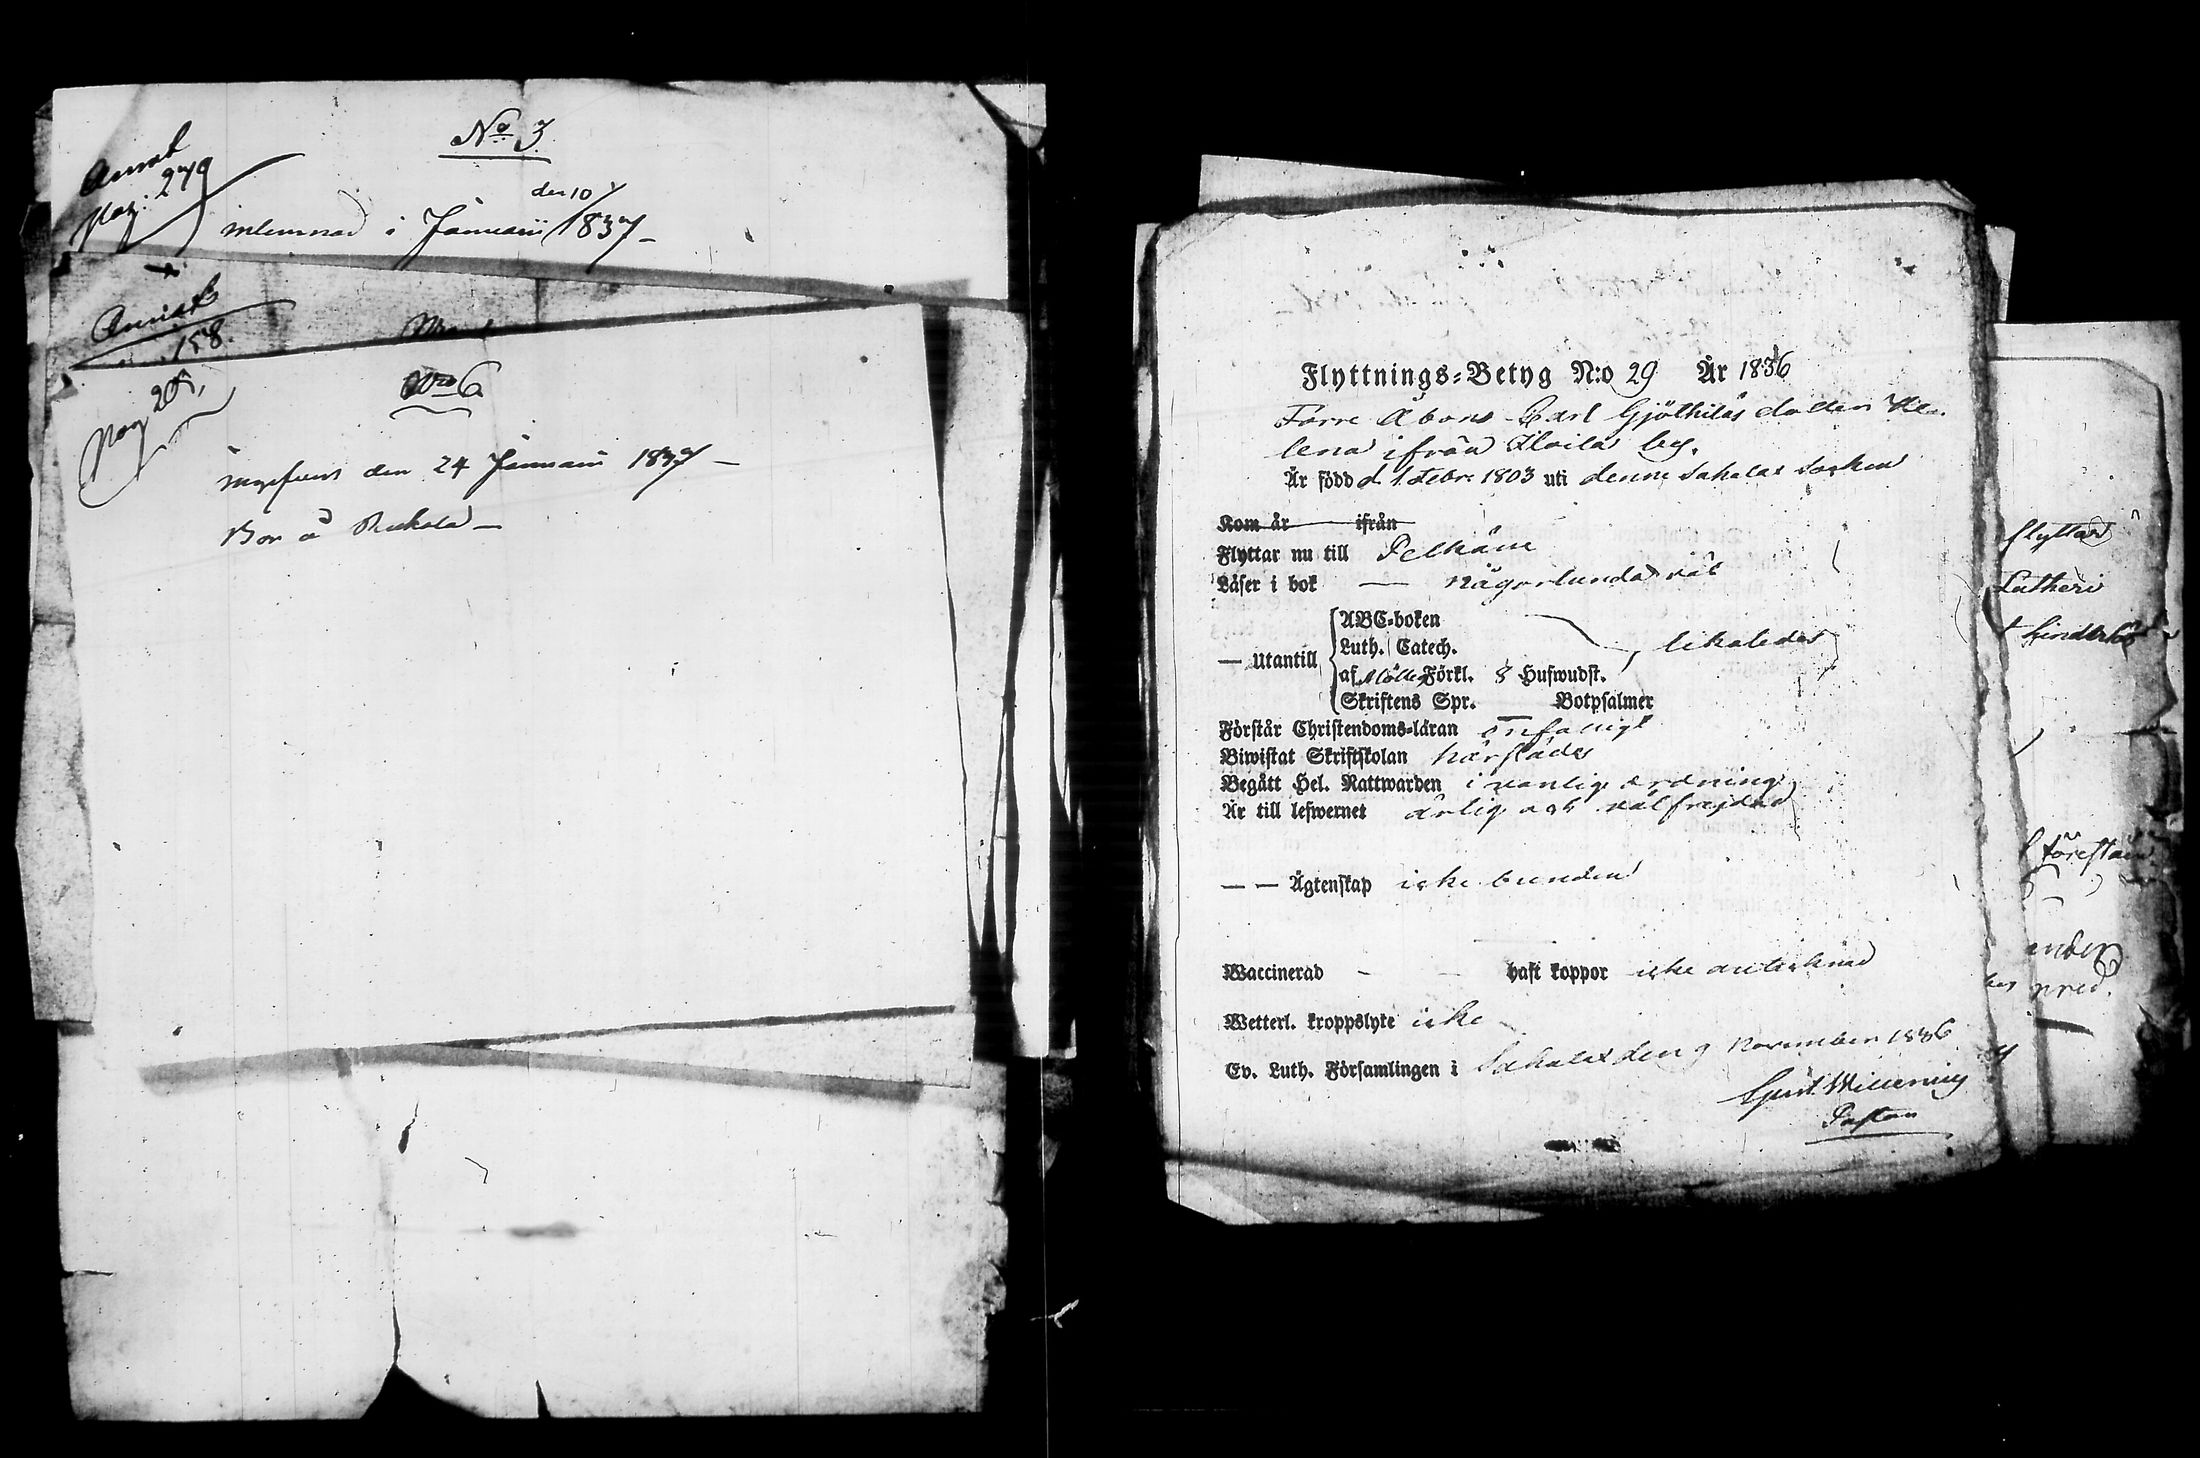 No 3
Annot
pag: 279
den 10
inlemnad i Januarii 1837
Annot
158.
No 6
Pag 201,
den 24 Januarii 1837
Bor å
Flyttnings-Betyg N:o 29 År 1836
Förre Åbons Carl Gjöthiläs dotter He-
lena ifrån Iloila by.
Är född d. 1 Febr. 1803 uti denne Sahalax Socken
Kom år ifrån
Flyttar nu till Pelkäne
Läser i bok — någorlunda väl
ABC-boken
Luth. Catech.
— Utantill likaledes
af Möllers Förkl. 8 Hufwudst.
Skriftens Spr. Botpsalmer
Förstår Christendoms-läran enfaldigt
Biwistat Skriftskolan härstädes
Begått Hel. Nattwarden i vanlig ordning
Är till lefwernet ärlig och välfrejdad
— — Ägtenskap icke bunden
Waccinerad - — haft koppor icke antecknad
Wetterl. kroppslyte icke
Ev. Luth. Församlingen i Sahalax den 9 November 1836
Pastor
flyttar
Lutheri